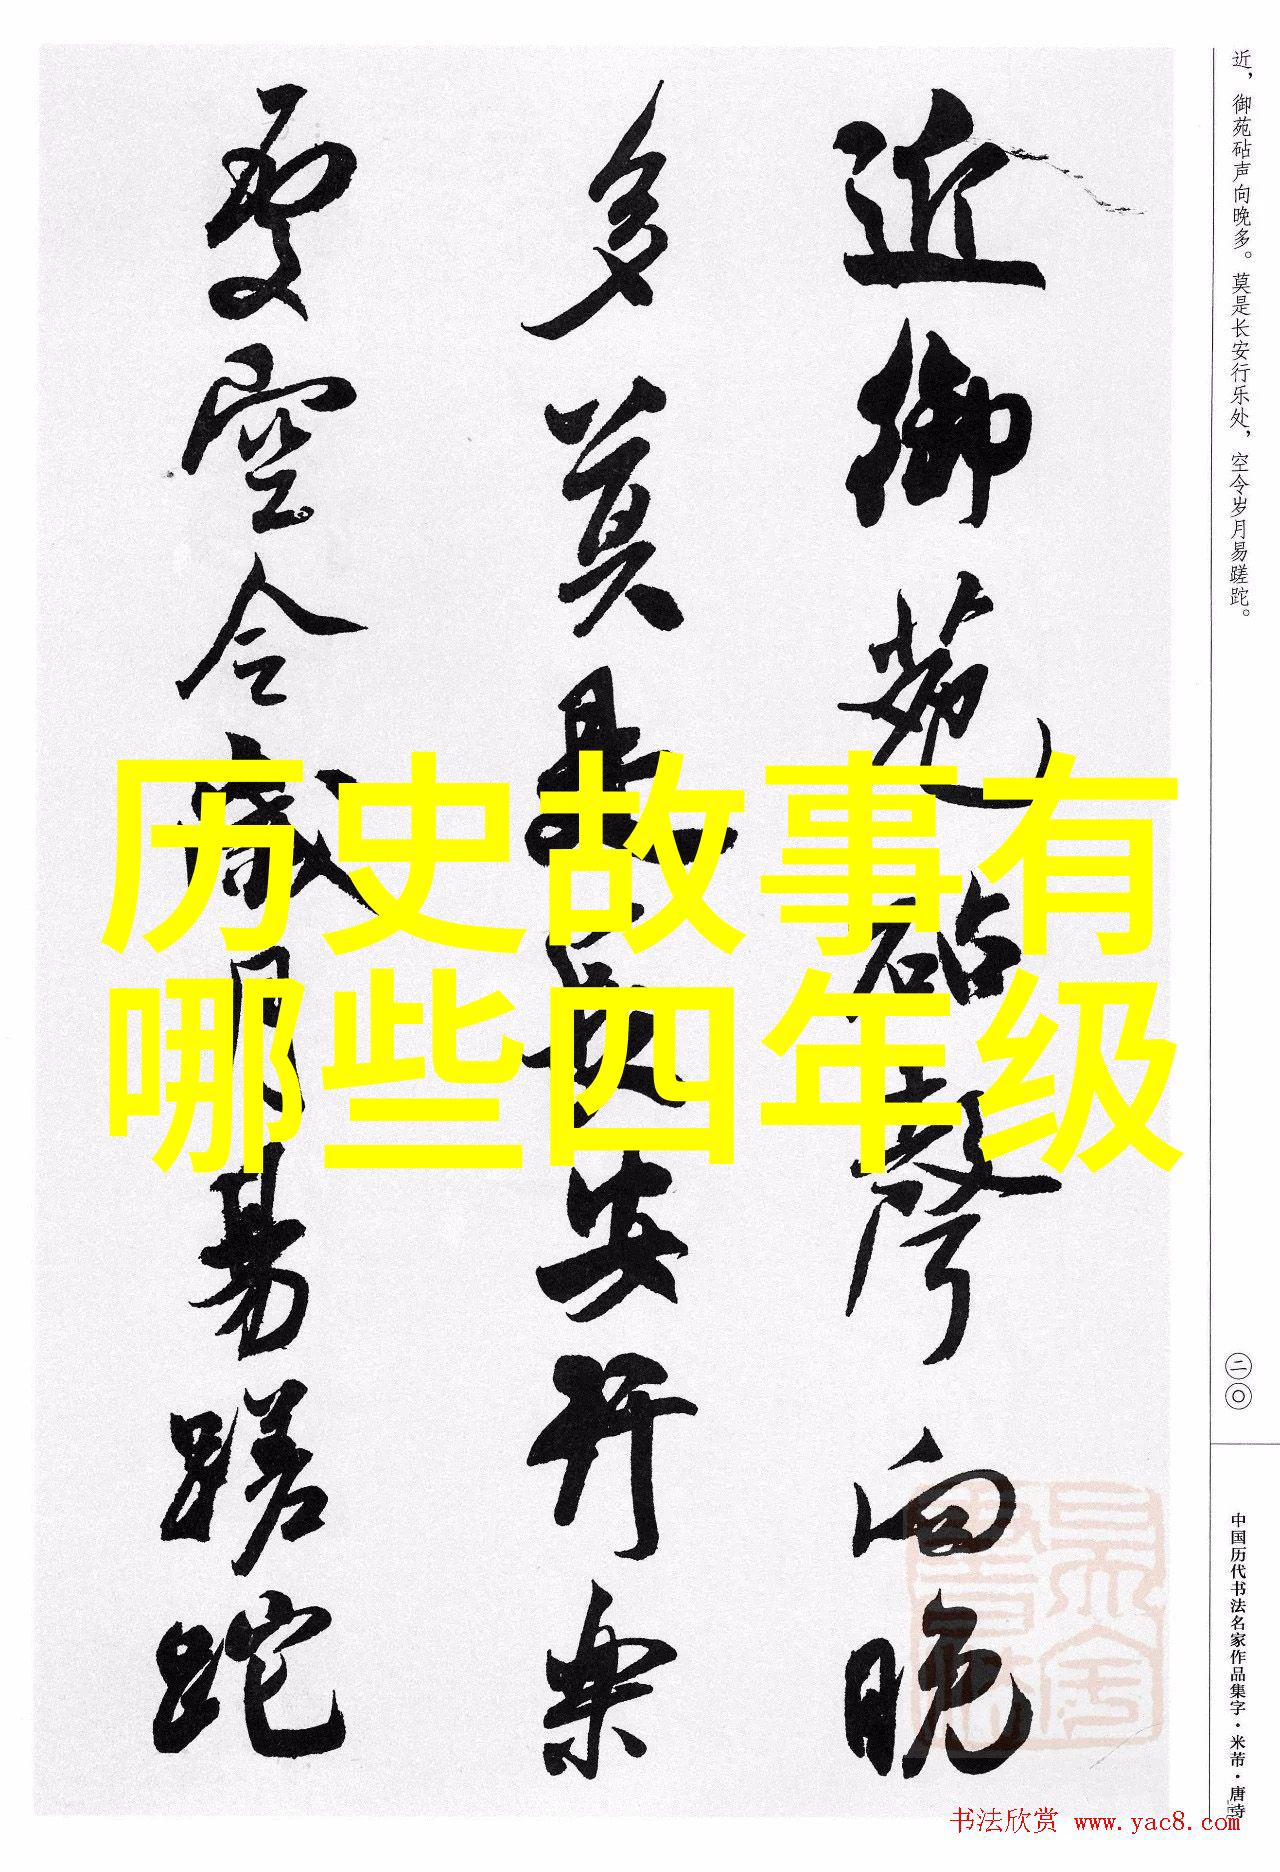 近御苑砧聲向晚
多莫是長安行樂
處空令歲月易蹉跎
历史故事有
哪些四年级
近，御苑砧声向晚多。莫是长安行乐处，空令岁月易蹉跎。
二〇
中国历代书法名家作品集字·米芾·唐诗
书法欣赏 www.yac8.com